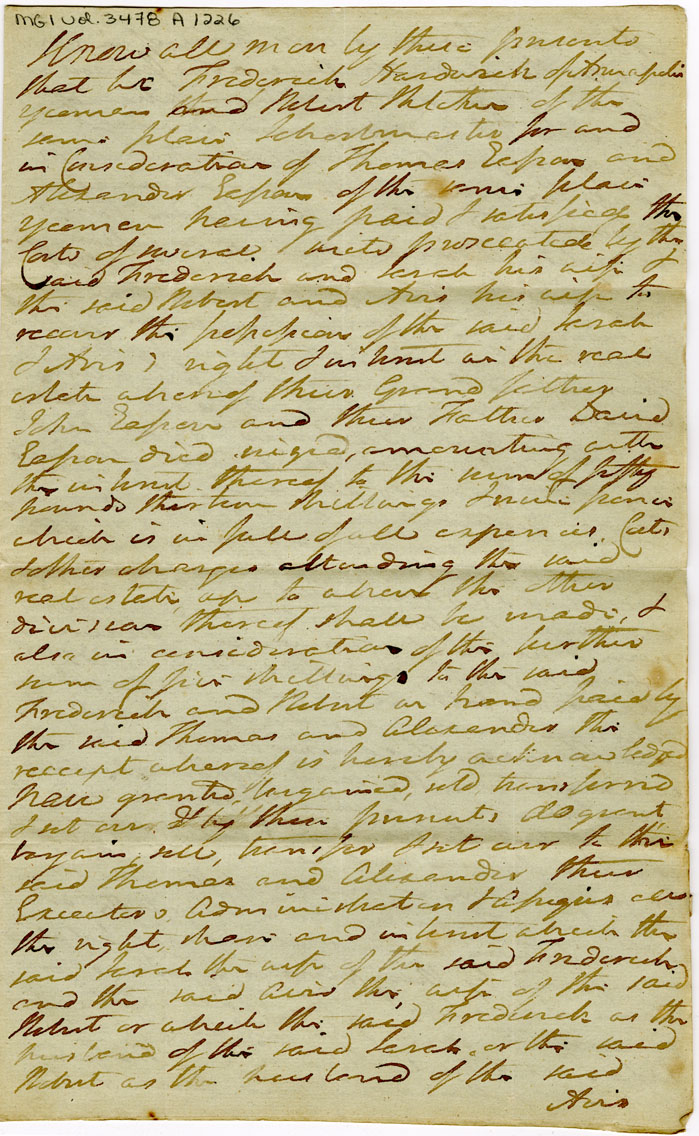 MG1 Vol. 3478 A 1226
Know all men by these presents
that we Frederick Hardwick of Annapolis
yeoman and Robert of the
same place Schoolmaster for and
in Consideration of Thomas Easson and
Alexander Easson of the same place
yeomen having paid & satisfied the
Costs of several suits prosecuted by the
said Frederick and Sarah his wife &
the said Robert and Avis his wife to
recover the possession of the said Sarah
& Avis's right & interest in the real
estate whereof their Grand father
John Easson and their Father David
Easson died siezed, amounting with
the interest thereof to the sum of fifty
pounds thirteen shillings & nine pence
which is in full of all expences, Costs
& other charges attending the said
real estate up to when the other
division thereof shall be made, &
also in consideration of the further
sum of five shillings to the said
Frederick and Robert in hand paid by
the said Thomas and Alexander the
receipt whereof is hereby acknowledged
have granted, bargained, sold transferred
& set over & by these presents do grant
bargain, sell, transfer & set over to the
said Thomas and Alexander their
Executors, Administrators & assigns all
the right, share and interest which the
said Sarah the wife of the said Frederick
and the said Avis the wife of the said
Robert or which the said Frederick as the
husband of the said Sarah or the said
Robert as the husband of the said
Avis